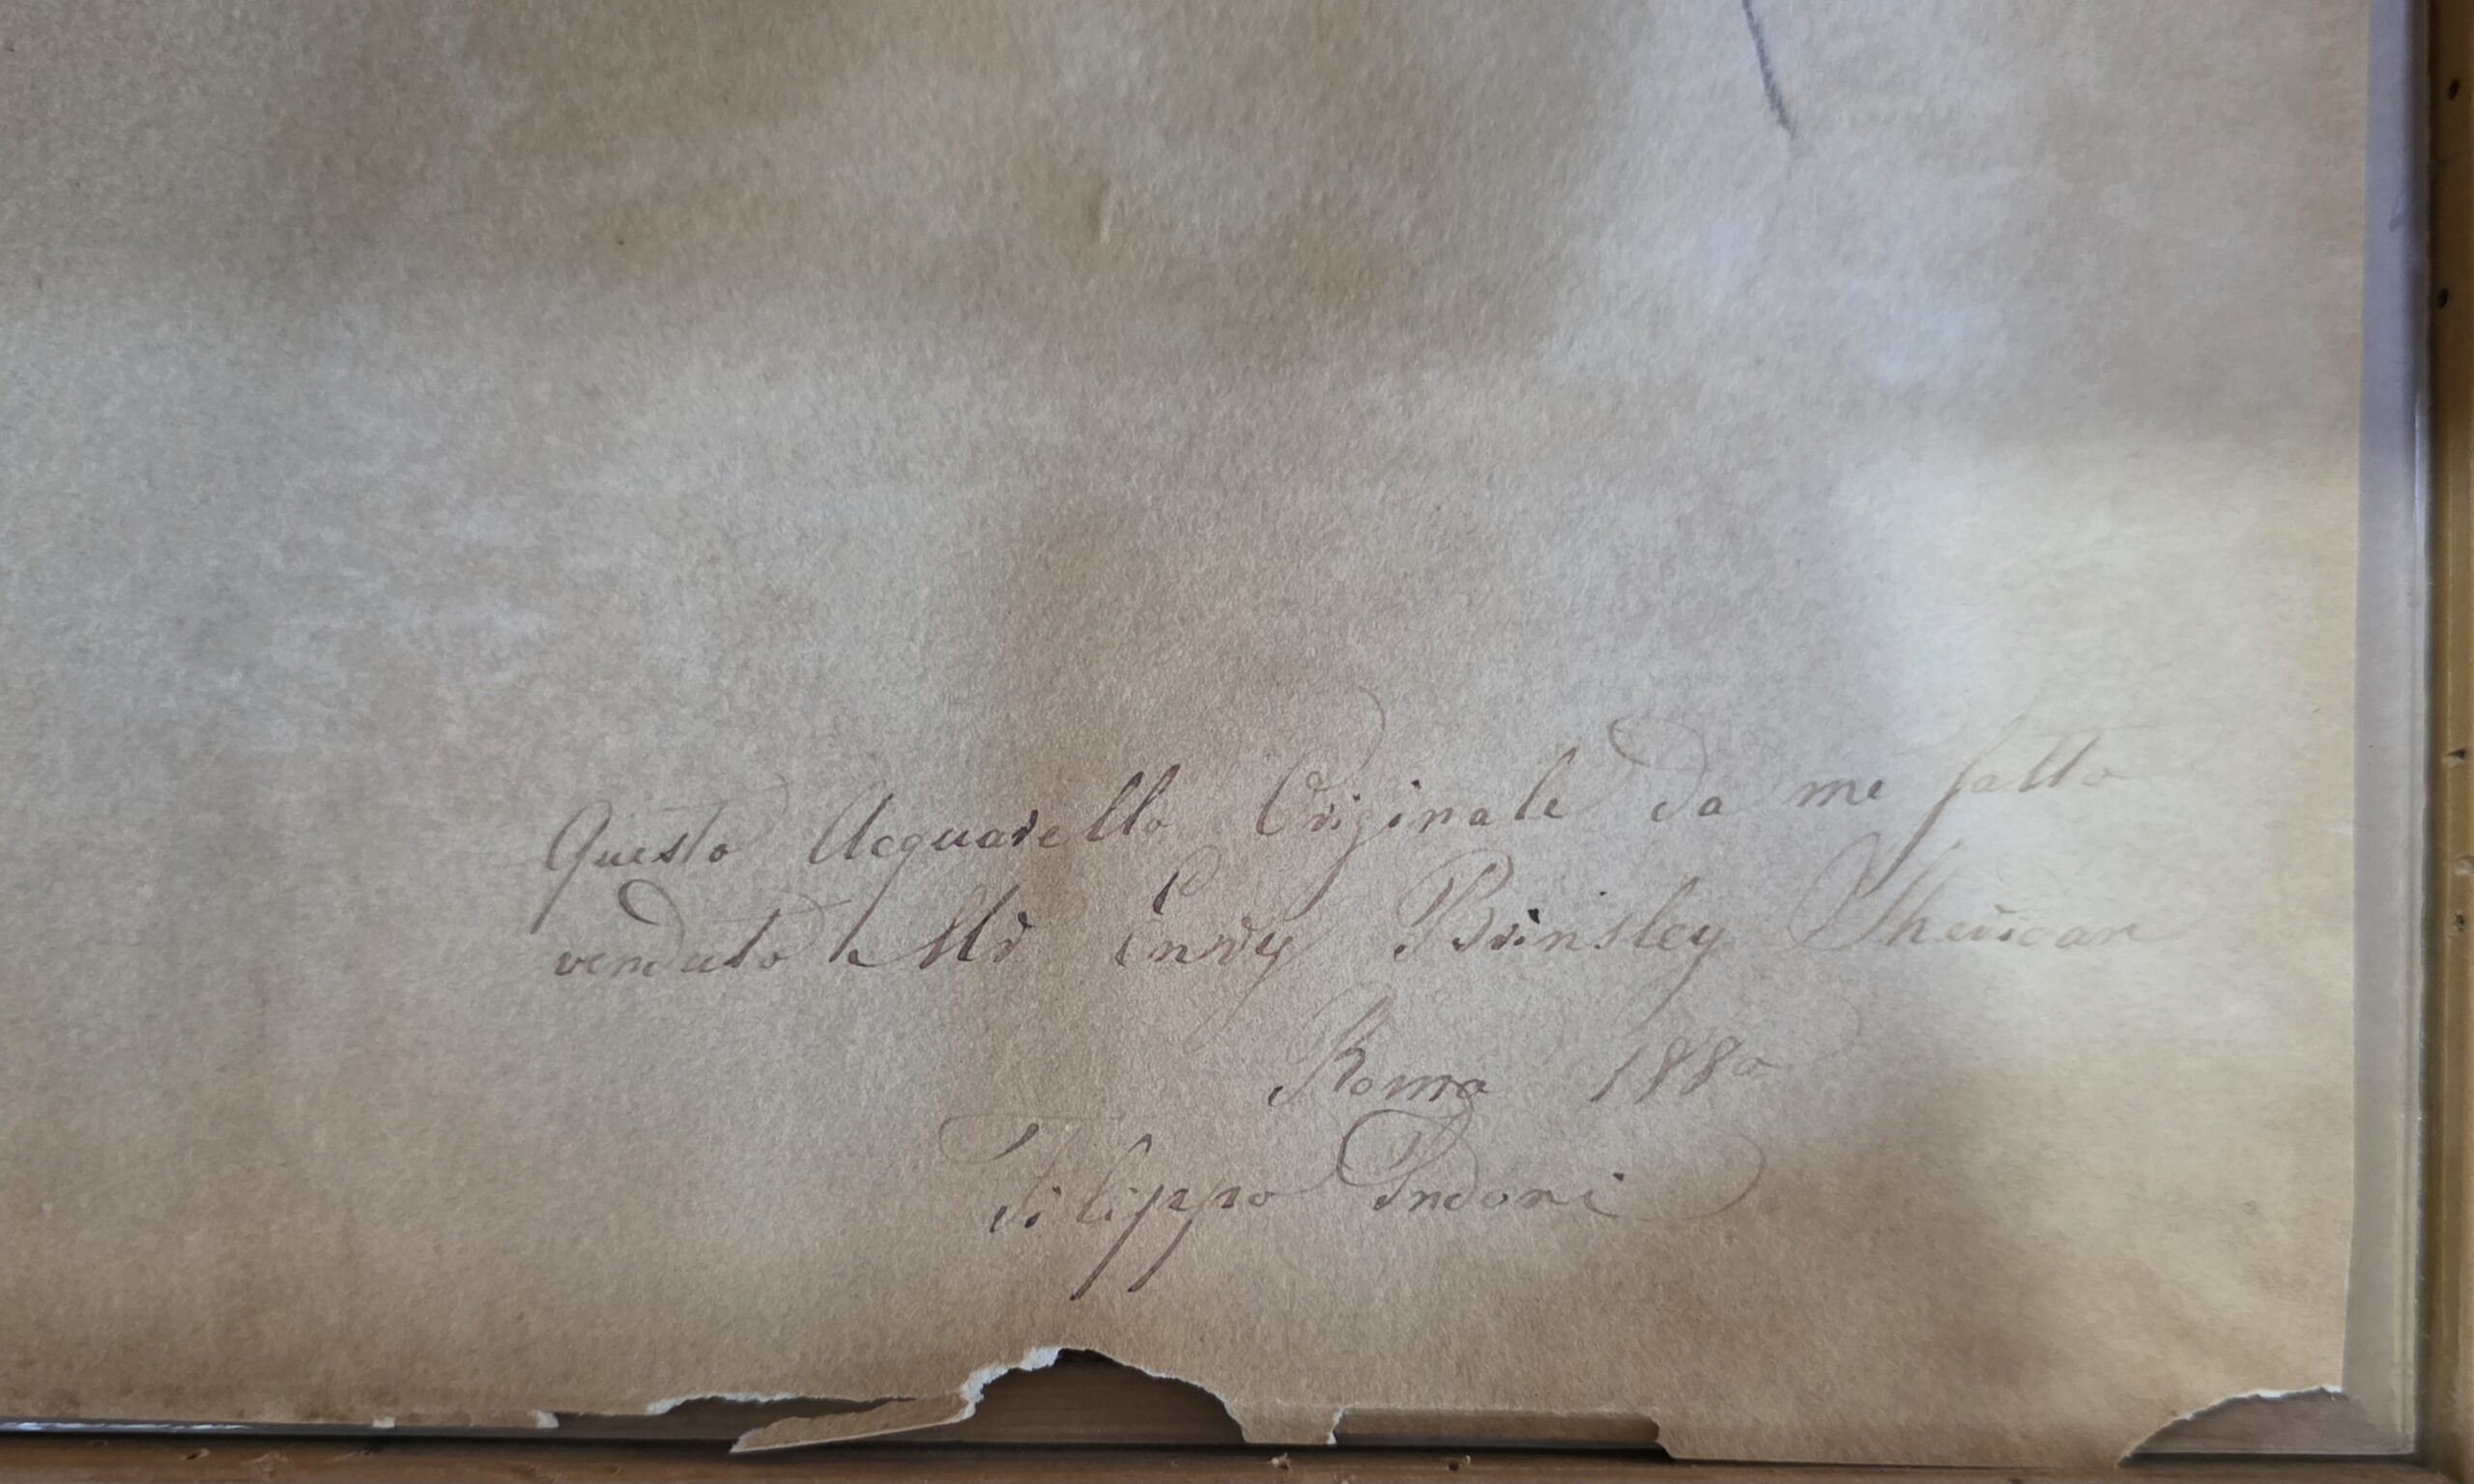 Questo Acquarello Originale da me fatto
venduto a Mr Enry Brinsley Sheridan
Roma 1880
Filippo Indoni